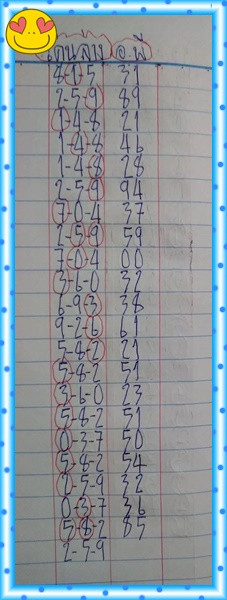 เด่นลบ อ.พี
8-1-5 31
2-5-9 89
1-4-8 21
1-4-8 46
1-4-8 28
2-5-9 94
7-0-4 37
2-5-9 59
7-0-4 00
3-6-0 32
6-9-3 38
9-2-6 61
5-8-2 21
5-8-2 51
3-6-0 23
5-8-2 51
0-3-7 50
5-8-2 54
2-5-9 32
0-3-7 36
5-8-2 85
2-5-9